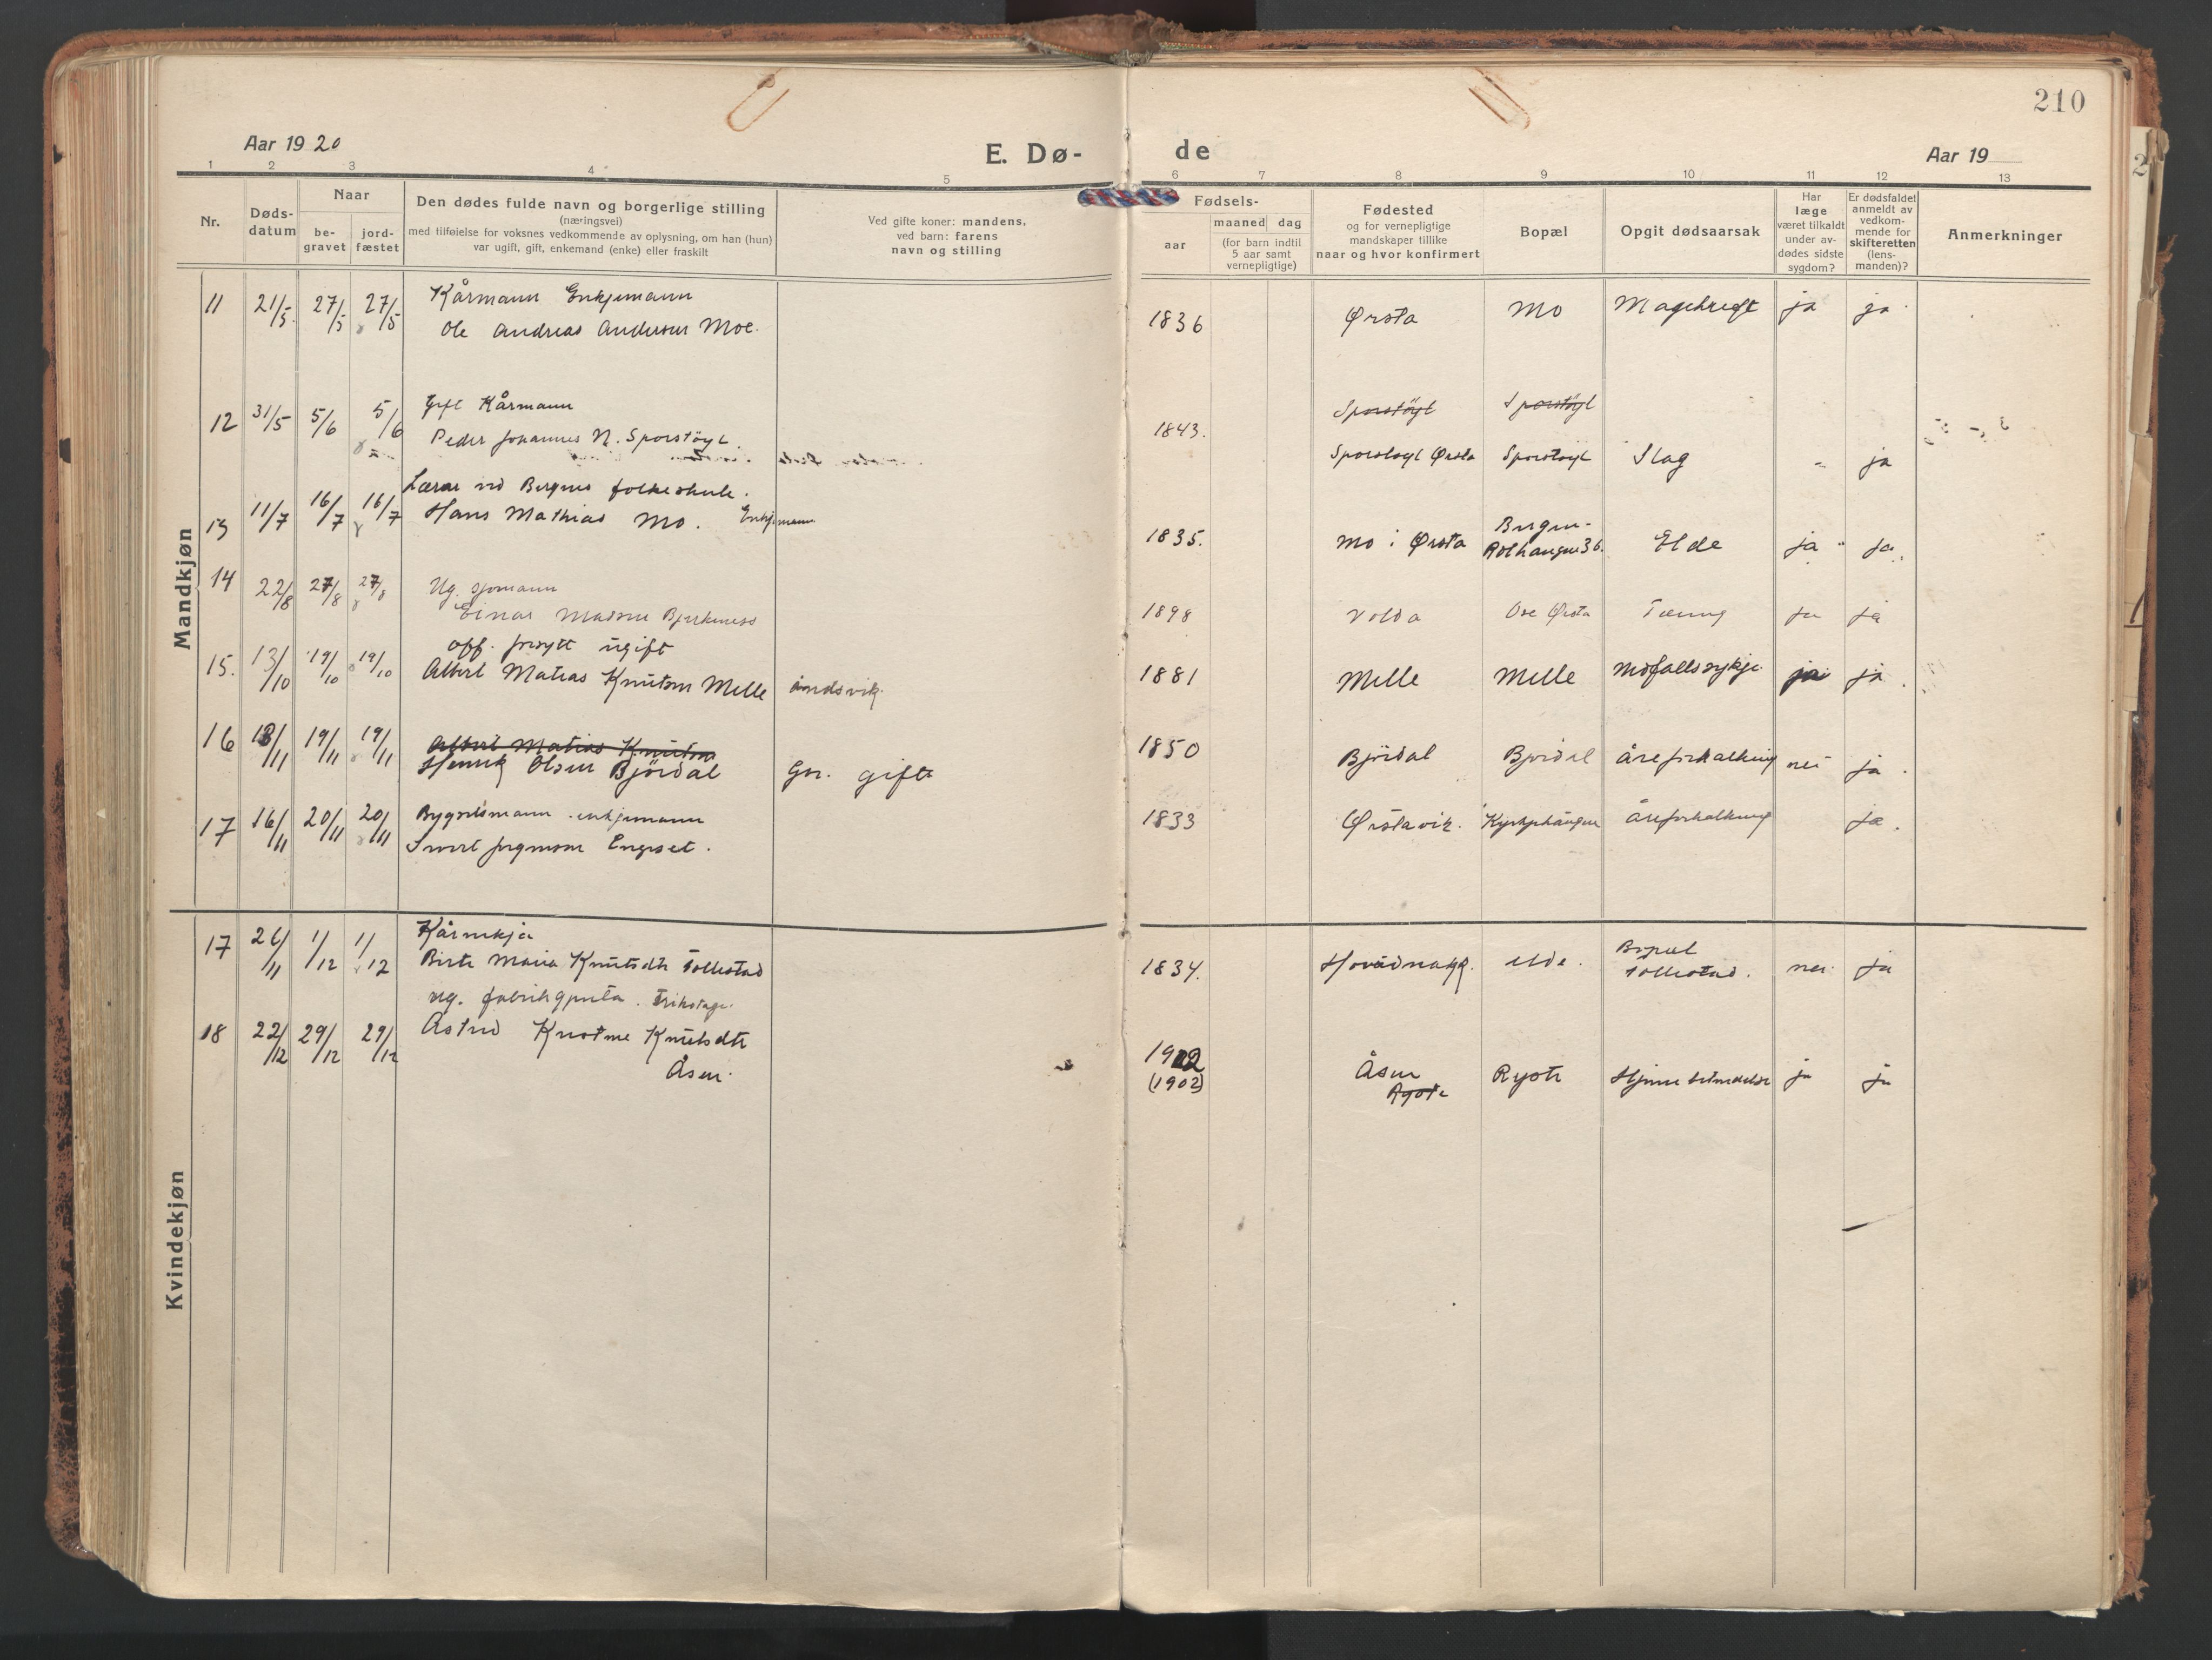 210
Aar 1920
E. Dø-
de
Aar 19
1 2 3 4 5 6 7 8 9 10 11 12 13
Nr.
Døds-
datum
Naar
be-
gravet
jord-
fæstet
Den dødes fulde navn og borgerlige stilling
(næringsvei)
med tilføielse for voksnes vedkommende av oplysning, om han (hun)
var ugift, gift, enkemand (enke) eller fraskilt
Ved gifte koner: mandens,
ved barn: farens
navn og stilling
Fødsels-
aar
maaned dag
(for barn indtil
5 aar samt
vernepligtige)
Fødested
og for vernepligtige
mandskaper tillike
naar og hvor konfirmert
Bopæl
Opgit dødsaarsak
Har
læge
været tilkaldt
under av-
dødes sidste
sygdom?
Er dødsfaldet
anmeldt av
vedkom-
mende for
skifteretten
(lens-
manden)?
Anmerkninger
Mandkjøn
11 21/5 27/5 27/5 Kårmann Enkjemann
Ole Andreas Andersen Moe. 1836 Ørsta Mo Magekreft ja ja
12 31/5 5/6 5/6 Gift Kårmann Sporstøyl Sporstøyl
Peder Johannes N. Sporstøyl. 1843. Sporstøyl Ørsta Sporstøyl Slag - ja
Lærar ved Bergens folkeskule.
13 11/7 16/7 16/7 Hans Mathias Mo. Enkjemann 1835. Mo i Ørsta Bergen- Elde ja ja.
14 22/8 27/8 27/8 Ug. sjømann
Einar Madsen Bjerkeness 1898 Volda Ose Ørsta Tæring ja ja
off. forsytt ugift
15. 13/10 19/10 19/10 Albert Matias Knutsen Melle åndsvik. 1881 Melle Melle Nidfallssykje ja ja.
16 18/11 19/11 19/11 Albert Matias Knutsen
Henrik Olsen Björdal Gr. gift 1850 Björdal Björdal Åreforkalkning nei ja.
17 16/11 20/11 20/11 Bygselsmann enkjemann
Sivert Jørgensen Engeset. 1833 Ørstavik. Kyrkjehaugen Åreforkalkning ja.
Kvindekjøn
17 26/11 1/12 1/12 Kårenkja
Birte Maria Knutsdtr Follestad 1834. Hovdenakk. elde. Bopæl Follestad. nei ja
ug. fabrikgjenta. Trikotage.
18 22/12 29/12 29/12 Astrid Knutsdtr
Åsen. 1902
(1902) Åsen
Ryste Ryste ja ja